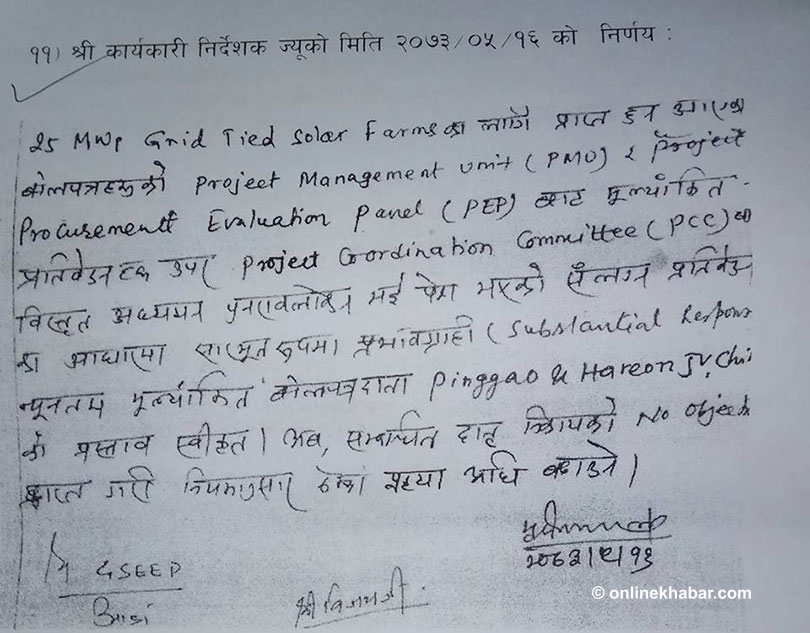 ११) श्री कार्यकारी निर्देशक ज्यूको मिति २०७३/०५/१६ को निर्णय :
25 MWp Grid Tied Solar Farms का लागि प्राप्त हुन आएका
बोलपत्रहरुको Project Management Unit (PMU) र Project
Procurement Evaluation Panel (PEP) बाट मूल्यांकित
प्रतिवेदन उपर Project Coordination Committee (PCC) बाट
विस्तृत अध्ययन पुनरावलोकन भई पेश भएको संलग्न प्रतिवेदन
का आधारमा सारभूत रुपमा प्रभावग्राही (Substantial Respons
न्यूनतम मूल्यांकित बोलपत्रदाता Pinggao & Hareon JV, Chi
को प्रस्ताव स्वीकृत। अब, सम्बन्धित दातृ निकायको No Object
प्राप्त गरी नियमानुसार ठेक्का प्रकृया अघि बढाउने।
२०७३।५।१६
GSEEP
श्री विजयजी
© onlinekhabar.com